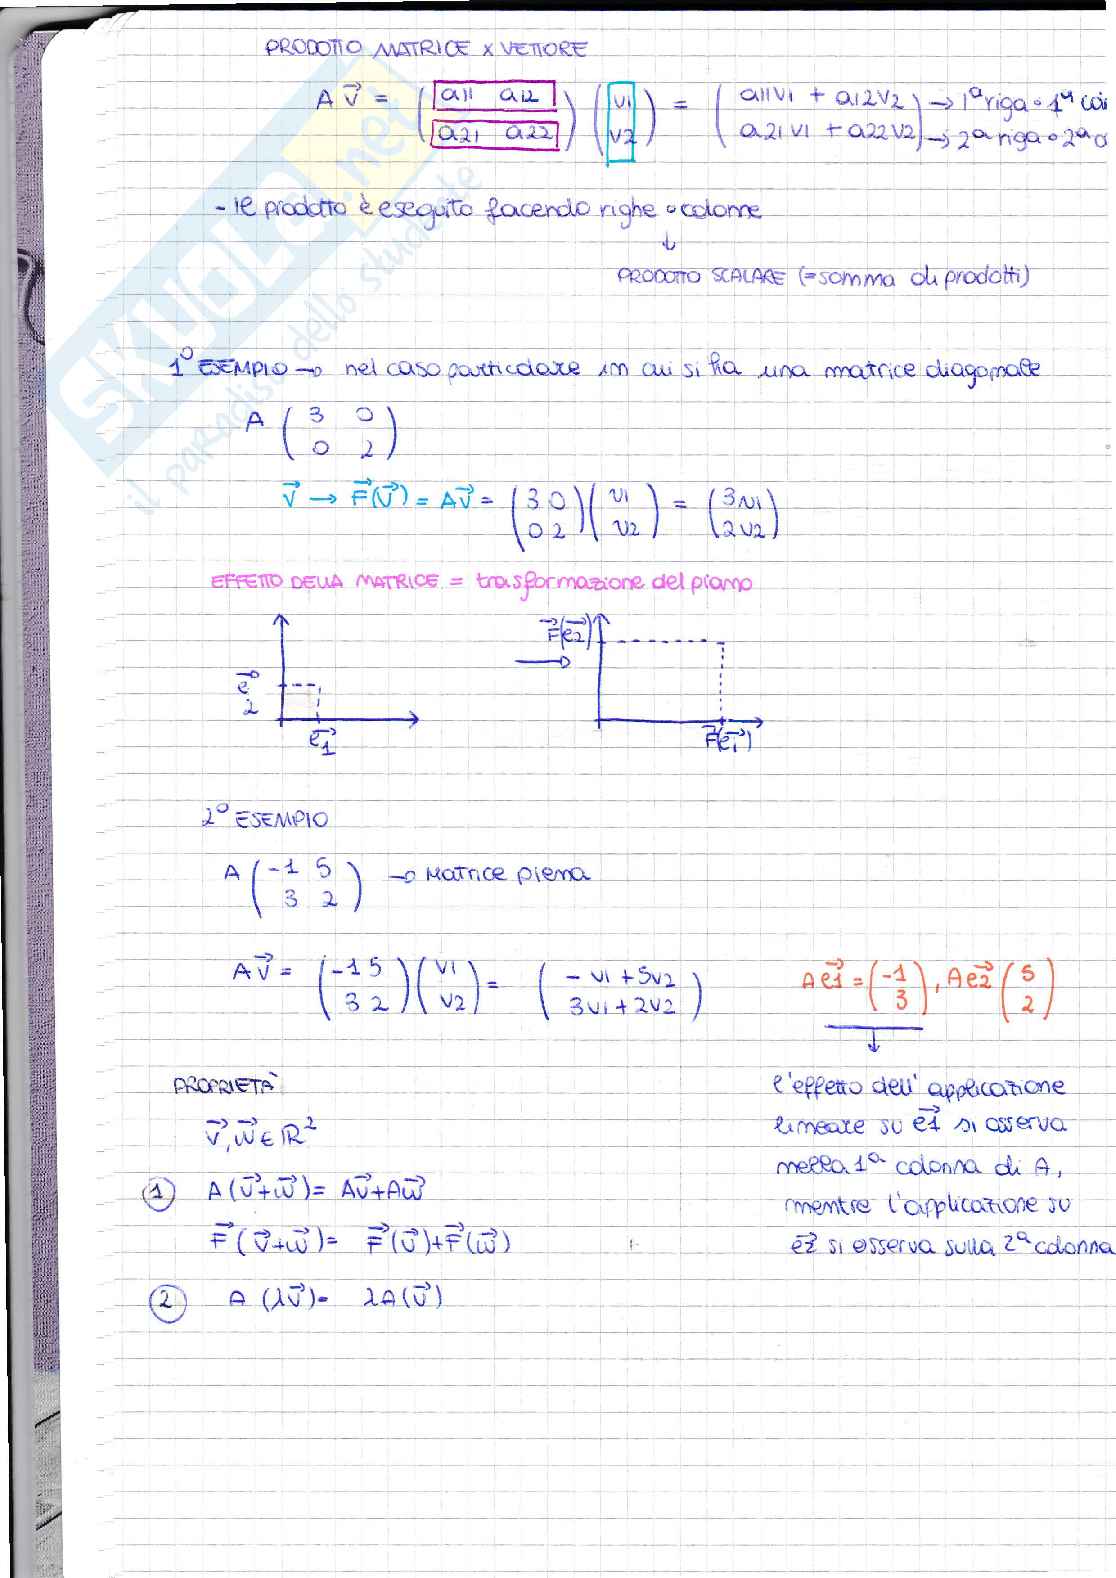 PRODOTTO MATRICE x VETTORE
A v⃗ = ( a11 a12 ) ( v1 ) = ( a11v1 + a12v2 ) → 1ª riga • 1ª col
( a21 a22 ) ( v2 ) ( a21v1 + a22v2 ) → 2ª riga • 2ª c
- il prodotto è eseguito facendo righe • colonne
↓
PRODOTTO SCALARE (= somma di prodotti)
1° ESEMPIO → nel caso particolare in cui si ha una matrice diagonale
A ( 3 0 )
( 0 2 )
v⃗ → F⃗(v⃗) = Av⃗ = ( 3 0 ) ( v1 ) = ( 3v1 )
( 0 2 ) ( v2 ) ( 2v2 )
EFFETTO DELLA MATRICE = trasformazione del piano
e⃗2
e⃗1
→
F⃗(e⃗2)
F⃗(e⃗1)
2° ESEMPIO
A ( -1 5 ) → Matrice piena
( 3 2 )
Av⃗ = ( -1 5 ) ( v1 ) = ( - v1 + 5v2 )
( 3 2 ) ( v2 ) ( 3v1 + 2v2 )
Ae⃗1 = ( -1 ) , Ae⃗2 ( 5 )
( 3 ) ( 2 )
↓
l'effetto dell'applicazione
lineare su e⃗1 si osserva
nella 1ª colonna di A,
mentre l'applicazione su
e⃗2 si osserva sulla 2ª colonna
PROPRIETÀ
v⃗, w⃗ ∈ ℝ²
① A (v⃗+w⃗) = Av⃗+Aw⃗
F⃗ (v⃗+w⃗) = F⃗(v⃗)+F⃗(w⃗)
② A (λv⃗) = λA(v⃗)
SKUOLA.net
il paradiso dello studente